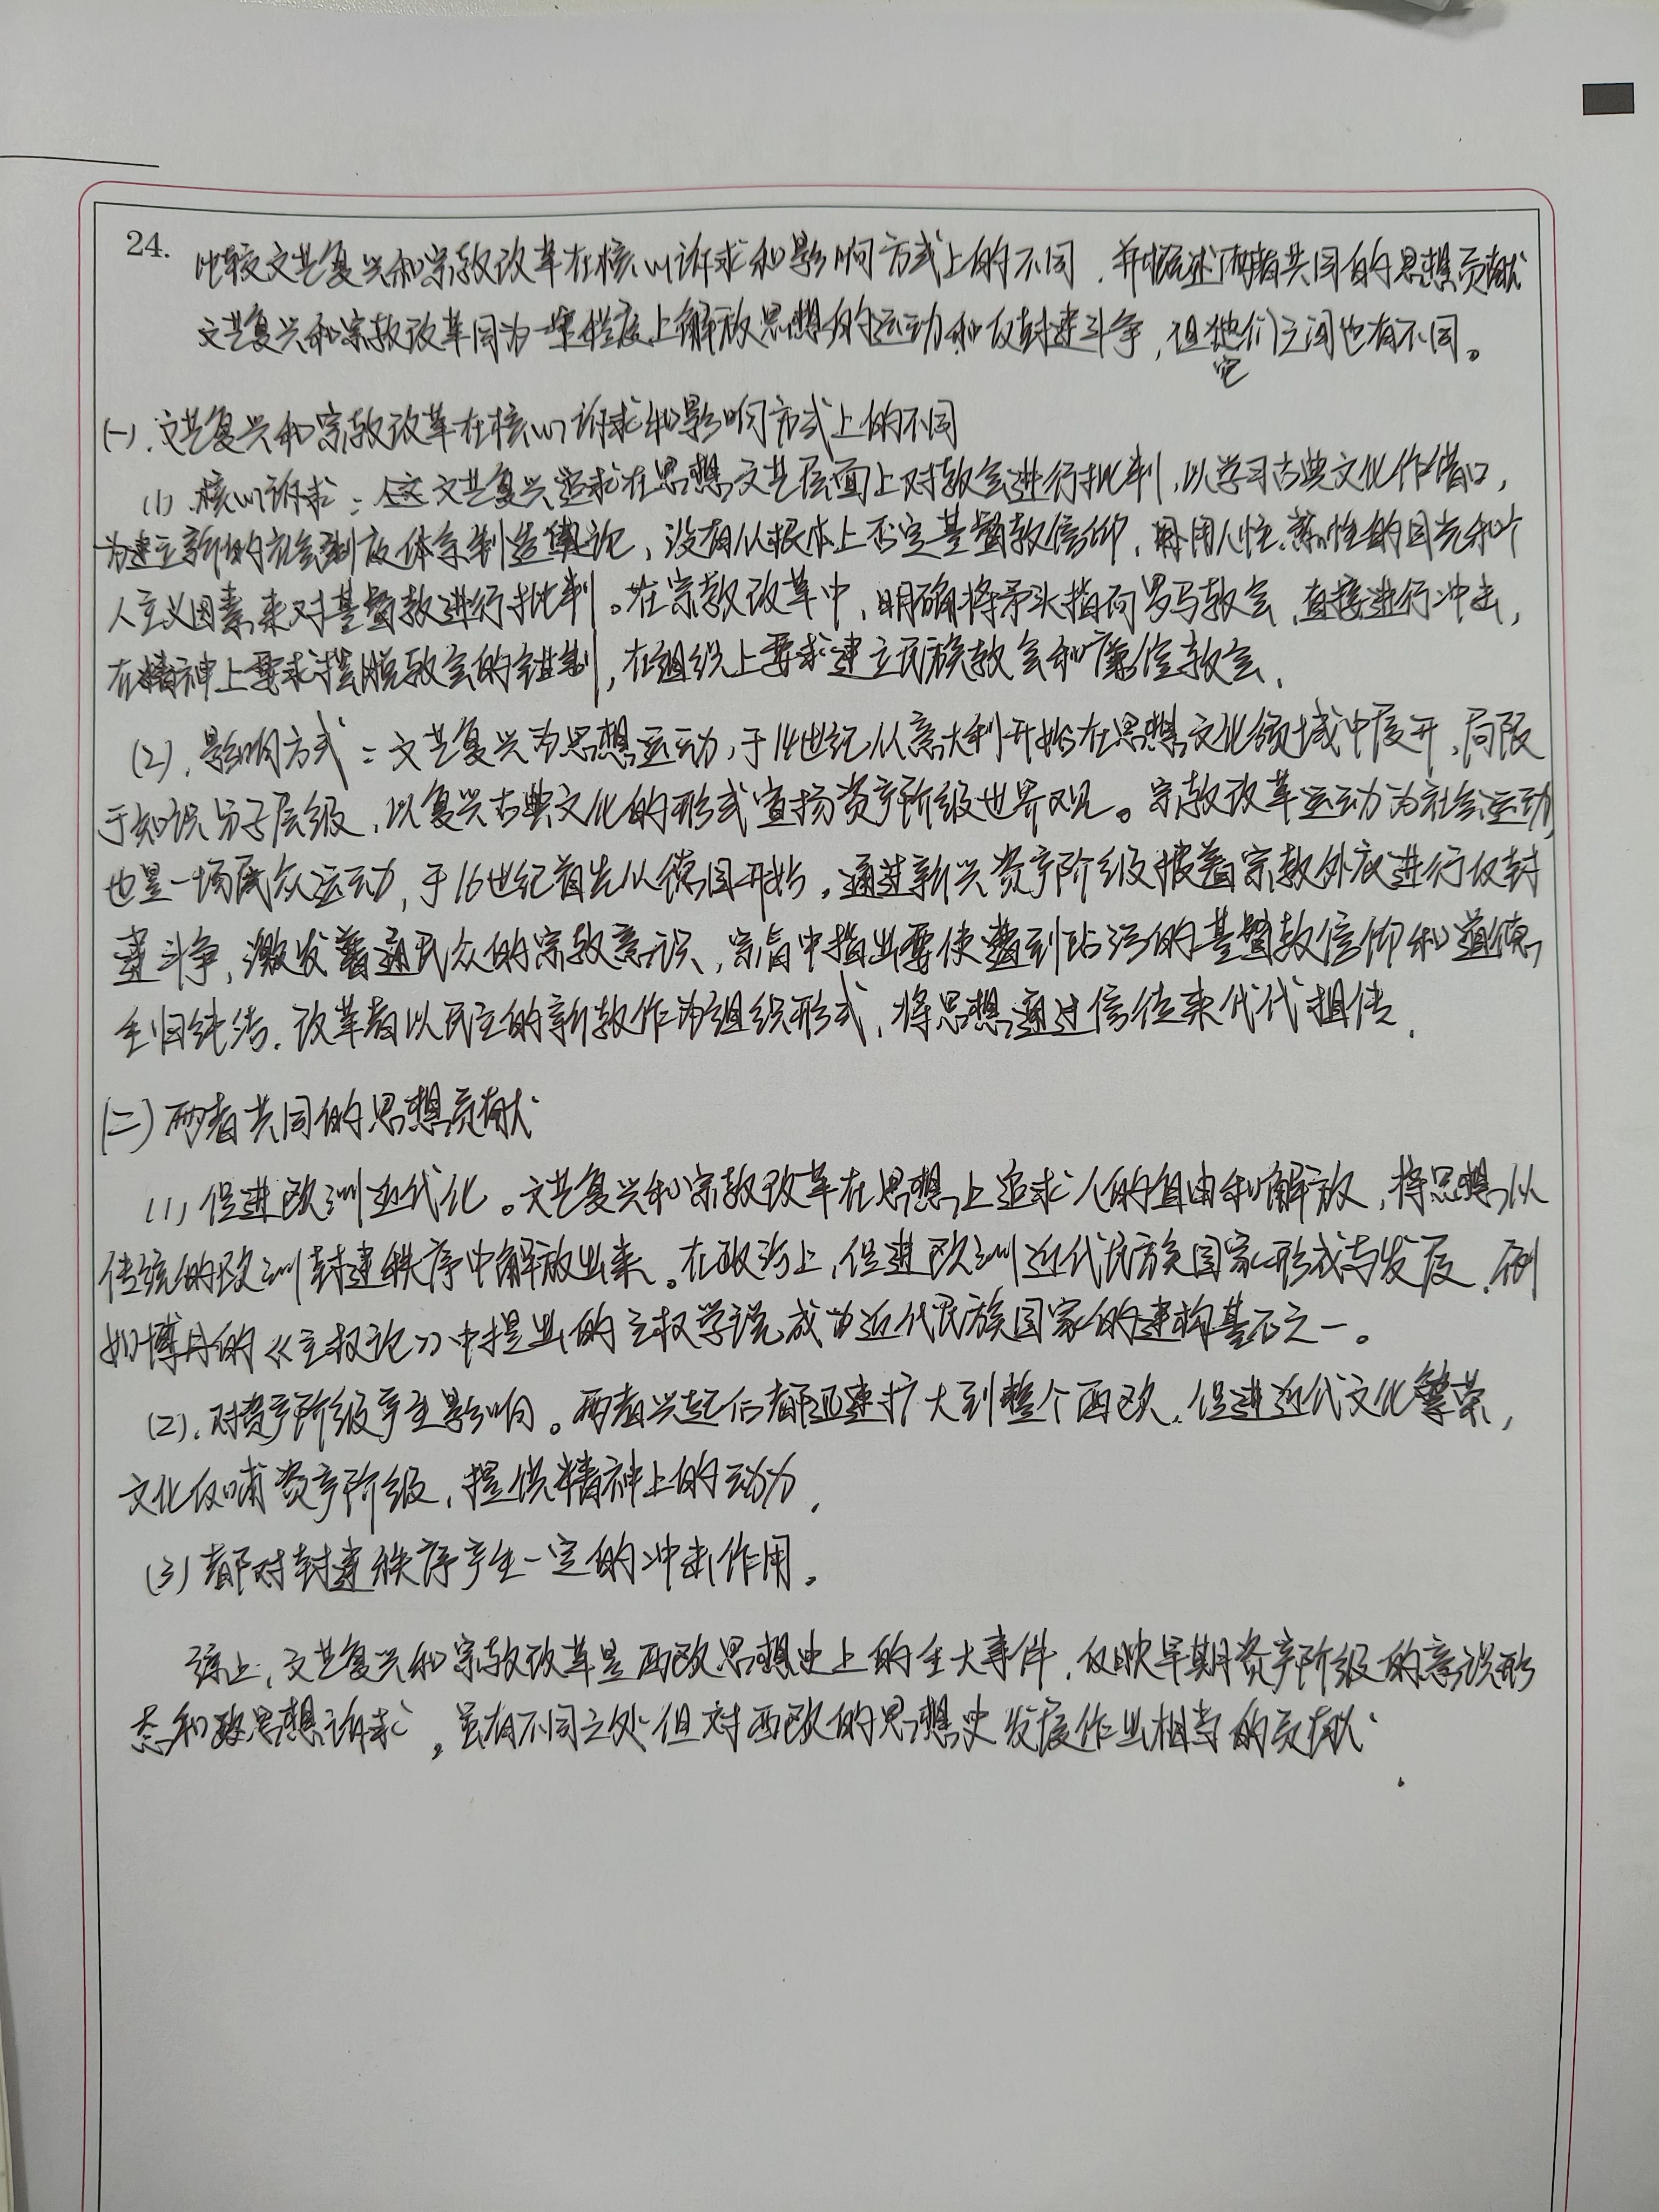 24. 比较文艺复兴和宗教改革在核心诉求和影响方式上的不同，并概述两者共同的思想贡献
文艺复兴和宗教改革同为一定程度上解放思想的运动和反封建斗争，但它们之间也有不同。
(一).文艺复兴和宗教改革在核心诉求和影响方式上的不同
(1).核心诉求：文艺复兴追求在思想文艺层面上对教会进行批判，以学习古典文化作借口，
为建立新的社会制度体系制造舆论，没有从根本上否定基督教信仰，用人性、理性的目光和个
人主义因素来对基督教进行批判。在宗教改革中，明确将矛头指向罗马教会，直接进行冲击，
在精神上要求摆脱教会的钳制，在组织上要求建立民族教会和廉俭教会.
(2).影响方式：文艺复兴为思想运动，于14世纪从意大利开始在思想文化领域中展开，局限
于知识分子层级，以复兴古典文化的形式宣扬资产阶级世界观。宗教改革运动为社会运动，
也是一场民众运动，于16世纪首先从德国开始，通过新兴资产阶级披着宗教外衣进行反封
建斗争，激发普通民众的宗教意识，宗旨中指出要使遭到玷污的基督教信仰和道德
重归纯洁.改革者以民主的新教作为组织形式，将思想通过信徒来代代相传.
(二)两者共同的思想贡献
(1)促进欧洲近代化。文艺复兴和宗教改革在思想上追求人的自由和解放，将思想从
传统的欧洲封建秩序中解放出来。在政治上，促进欧洲近代民族国家形成与发展，例
如博丹的《主权论》中提出的主权学说成为近代民族国家的建构基石之一。
(2).对资产阶级产生影响。两者兴起后都迅速扩大到整个西欧，促进近代文化繁荣，
文化反哺资产阶级，提供精神上的动力.
(3)都对封建秩序产生一定的冲击作用。
综上，文艺复兴和宗教改革是西欧思想史上的重大事件，反映早期资产阶级的意识形
态和思想诉求。虽有不同之处但对西欧的思想史发展作出相当的贡献.